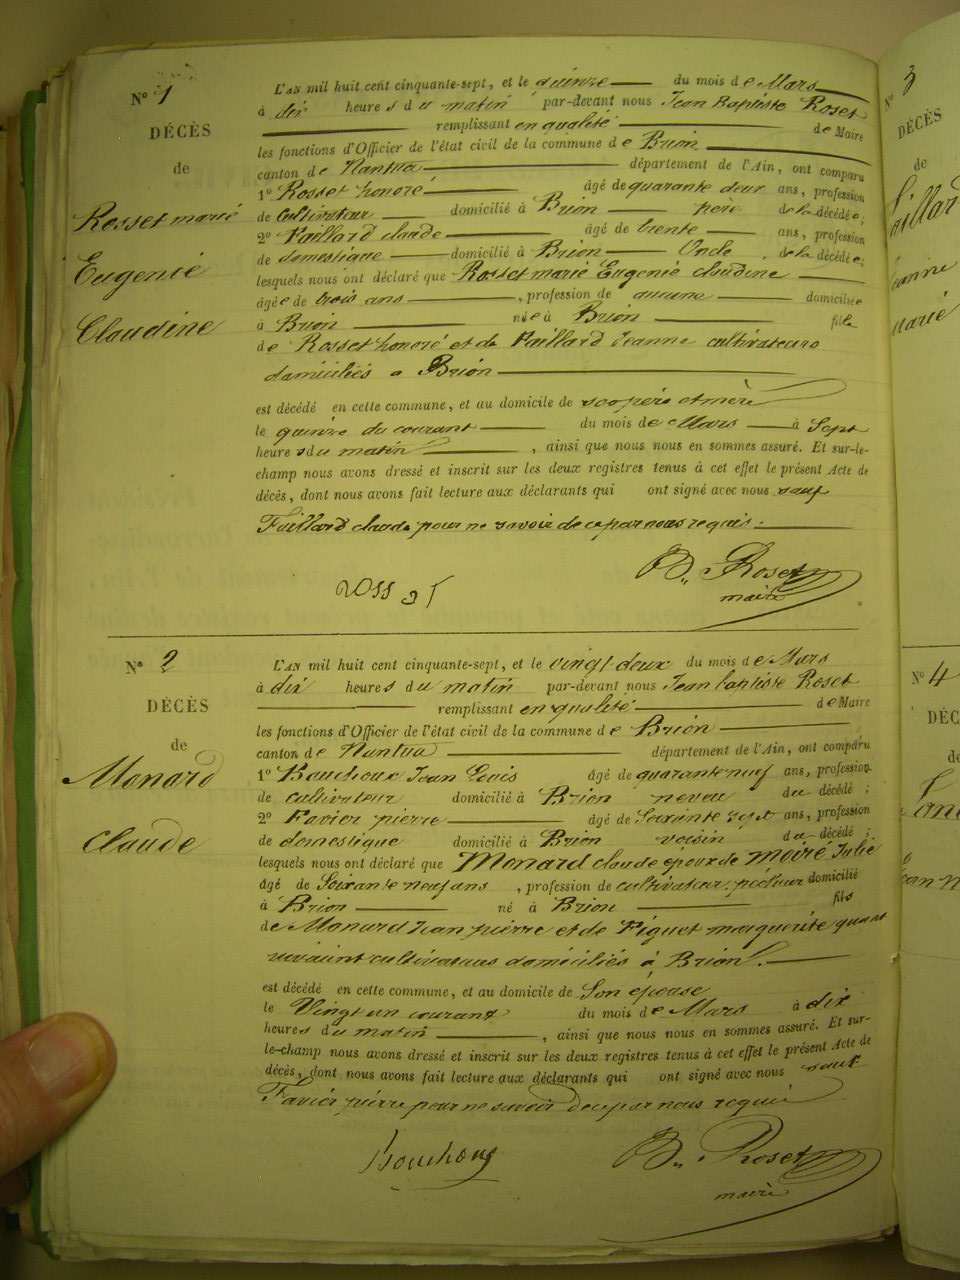 N° 1
DÉCÈS
de
Rosset marié
Eugenié
Claudine
L'AN mil huit cent cinquante-sept, et le quinze du mois de Mars
à dix heures du matin par-devant nous Jean Baptiste Roset
remplissant en qualité de Maire
les fonctions d'Officier de l'état civil de la commune de Brion
canton de Nantua département de l'Ain, ont comparu
1° Rosset honoré âgé de quarante deux ans, profession
de Cultivateur domicilié à Brion père de la décédée;
2° Faillard claude âgé de trente ans, profession
de domestique domicilié à Brion Oncle de la décédée;
lesquels nous ont déclaré que Rosset marié Eugenié claudine
âgée de trois ans, profession de aucune domiciliée
à Brion née à Brion fille
de Rosset honoré et de Faillard Jeanne cultivateurs
domiciliés a Brion
est décédé en cette commune, et au domicile de ses père et mère
le quinze du courant du mois de Mars à Sept
heures du matin, ainsi que nous nous en sommes assuré. Et sur-le-
champ nous avons dressé et inscrit sur les deux registres tenus à cet effet le présent Acte de
décès, dont nous avons fait lecture aux déclarants qui ont signé avec nous sauf
Faillard claude pour ne savoir de ce par nous requis.
B. Roset
maire
N° 2
DÉCÈS
de
Monard
Claude
L'AN mil huit cent cinquante-sept, et le vingt deux du mois de Mars
à dix heures du matin par-devant nous Jean baptiste Roset
remplissant en qualité de Maire
les fonctions d'Officier de l'état civil de la commune de Brion
canton de Nantua département de l'Ain, ont comparu
1° Bouchoux Jean Louis âgé de quarante neuf ans, profession
de cultivateur domicilié à Brion neveu du décédé;
2° Favier pierre âgé de Soixante sept ans, profession
de domestique domicilié à Brion voisin du décédé;
lesquels nous ont déclaré que Monard claude époux de moiré Julie
âgé de Soixante neuf ans, profession de cultivateur, pécheur domicilié
à Brion né à Brion fils
de Monard Jean pierre et de Piguet marguerite quant
vivaint cultivateurs domiciliés à Brion.
est décédé en cette commune, et au domicile de Son épouse
le Vingt un courant du mois de Mars à dix
heures du matin, ainsi que nous nous en sommes assuré. Et sur-
le-champ nous avons dressé et inscrit sur les deux registres tenus à cet effet le présent Acte de
décès, dont nous avons fait lecture aux déclarants qui ont signé avec nous sauf
Favier pierre pour ne savoir de ce par nous requis
Bouchoux
B. Roset
maire
N° 3
DÉCÈS
de
N° 4